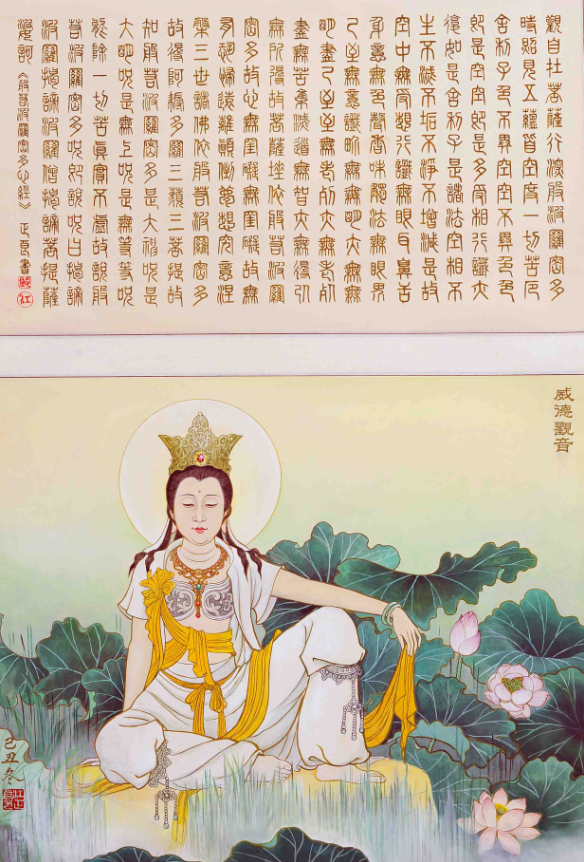 觀自在菩薩行深般若波羅密多
時照見五蘊皆空度一切苦厄
舍利子色不異空空不異色色
即是空空即是色受想行識亦
復如是舍利子是諸法空相不
生不滅不垢不淨不增減是故
空中無受想行識無眼耳鼻舌
身意無色聲香味觸法無眼界
乃至無意識界無無明亦無無
明盡乃至無老死亦無老死
盡無苦集滅道無智亦無得以
無所得故菩薩埵依般若波羅
密多故心無罣礙無罣礙故無
有恐怖遠離顛倒夢想究竟涅
槃三世諸佛依般若波羅密多
故得阿耨多羅三藐三菩提故
知般若波羅密多是大神咒是
大明咒是無上咒是無等等咒
能除一切苦真實不虛故說般
若波羅密多咒即說咒曰揭諦
波羅揭諦波羅僧揭諦菩提薩
婆訶《般若波羅密多心經》書
威德觀音
己丑冬